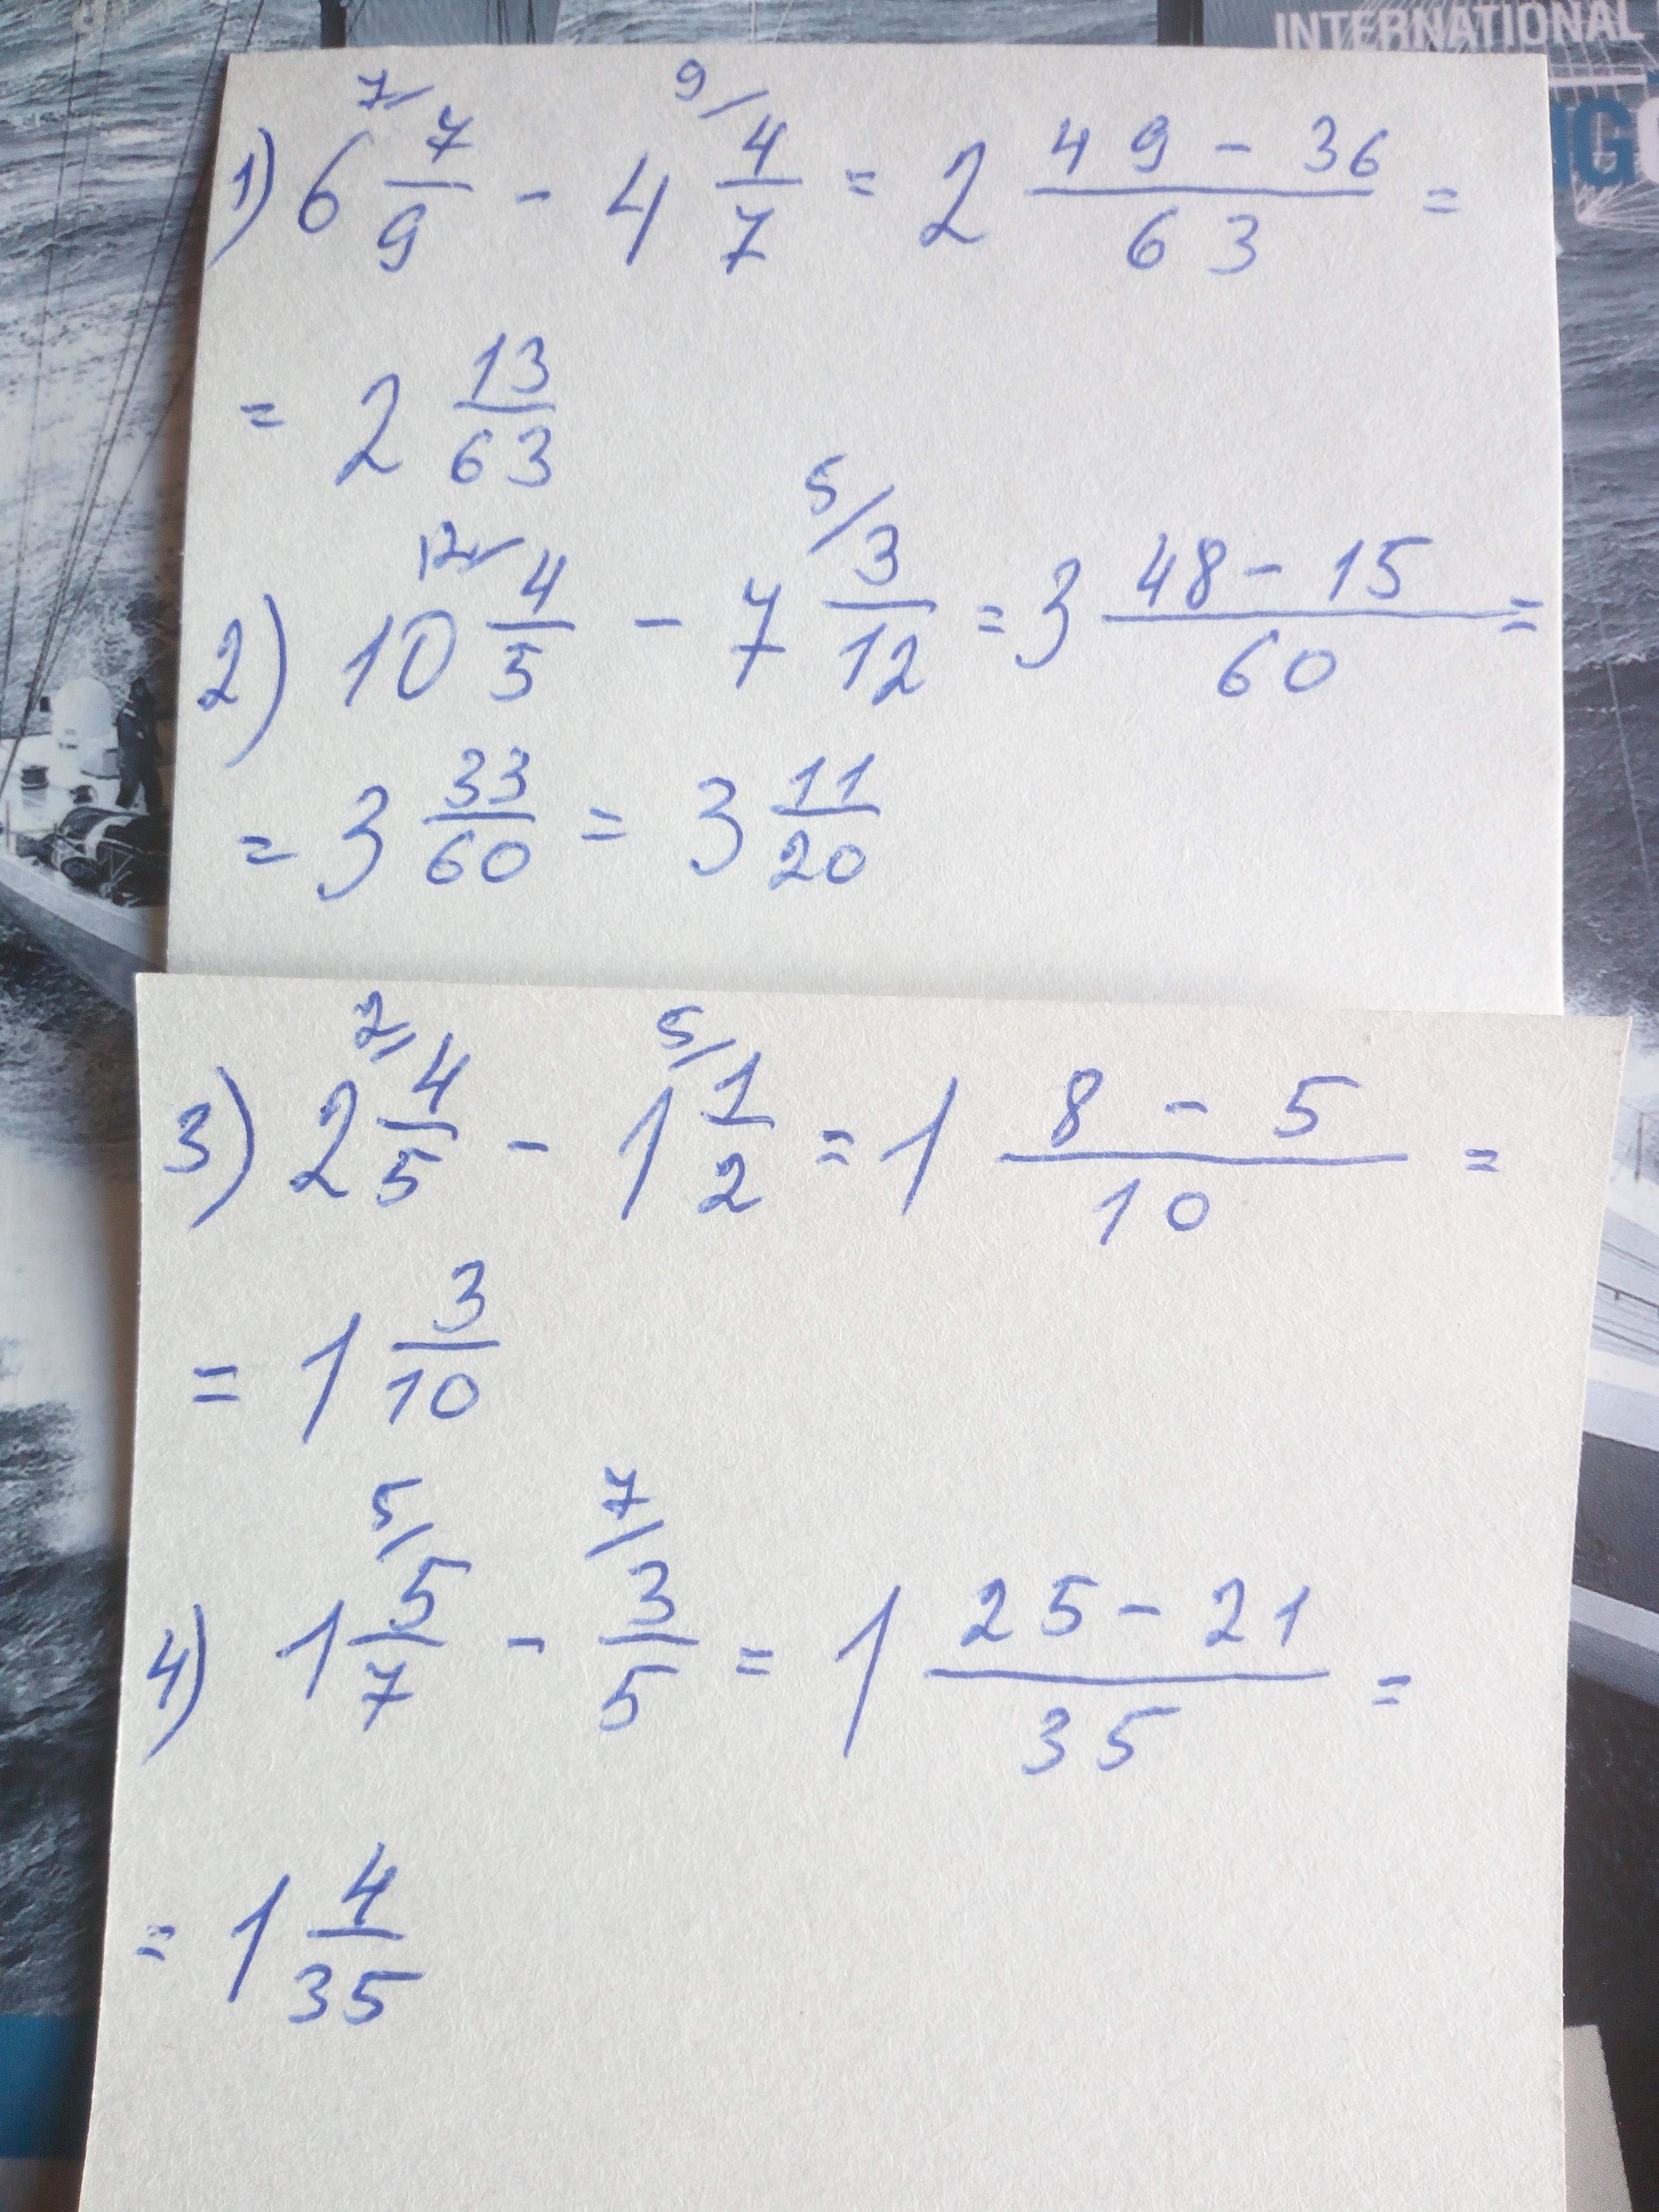 INTERNATIONAL
NG
1) 6 7/ 7/9 - 4 9/ 4/7 = 2 (49 - 36)/63 =
= 2 13/63
2) 10 12/ 4/5 - 7 5/ 3/12 = 3 (48 - 15)/60 =
= 3 33/60 = 3 11/20
3) 2 2/ 4/5 - 1 5/ 1/2 = 1 (8 - 5)/10 =
= 1 3/10
4) 1 5/ 5/7 - 7/ 3/5 = 1 (25 - 21)/35 =
= 1 4/35